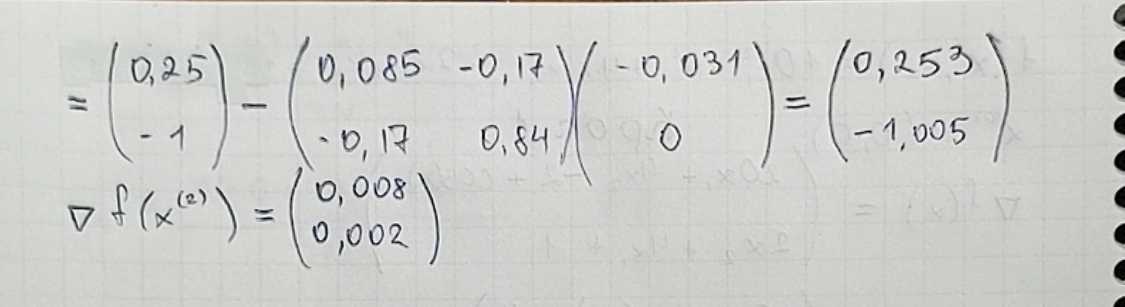 = (0,25 -1) - (0,085 -0,17 -0,17 0,84)(-0,031 0) = (0,253 -1,005)
∇ f(x⁽²⁾) = (0,008 0,002)